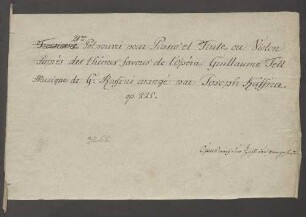 Potpourri pour Piano et Flute ou Violon
d'après des thêmes favoris de l'opéra Guillaume Tell
Musique de G. Rossini arrangé par Joseph Küffner
op. 225.